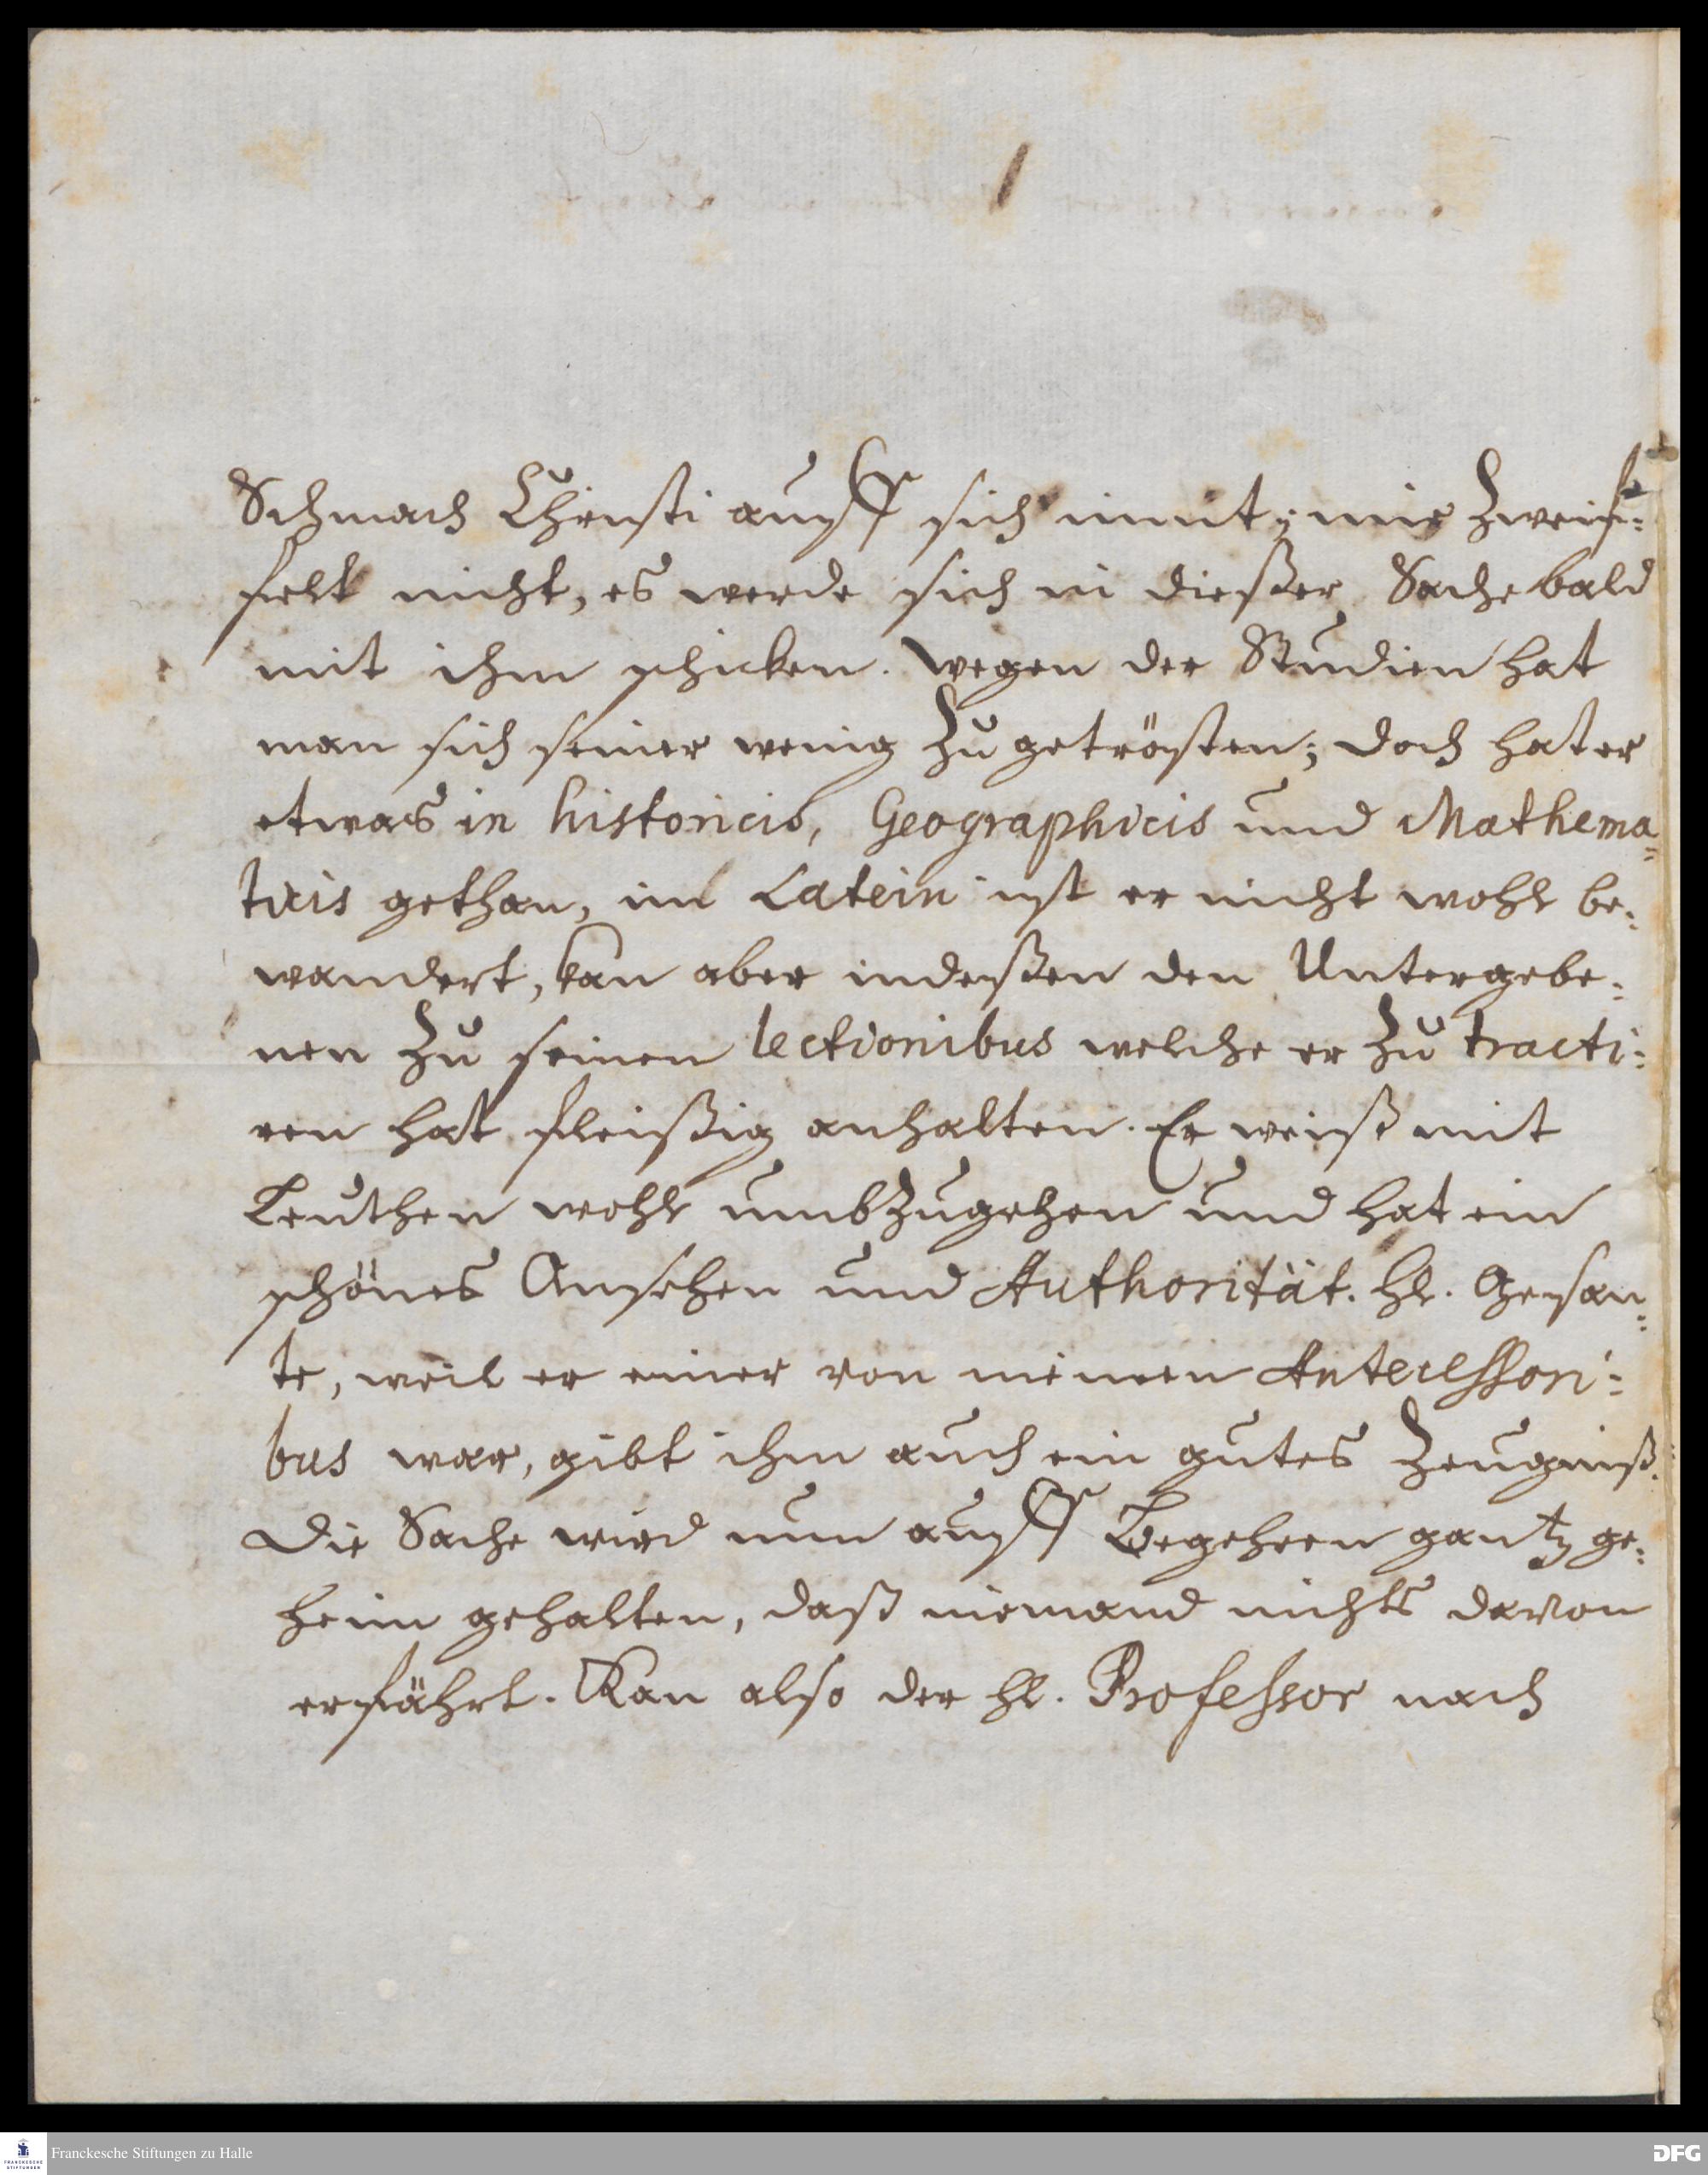 Schmach Christi auff sich nimt; mir Zweif=
felt nicht, es werde sich in dießer Sache bald
mit ihm schicken. Wegen der Studien hat
man sich seiner wenig Zu getrösten; doch hat er
etwas in historicis, Geographicis und Mathema=
ticis gethan, im Latein ist er nicht wohl be=
wandert, kan aber indeßen den Untergebe=
nen Zu seinen lectionibus welche er Zu tracti=
ren hat fleißig anhalten. Er weiß mit
Leuthen wohl umbZugehen und hat ein
schönes Ansehen und Authorität. Hl. Gesan=
te, weil er einer von meinen Antecessori=
bus war, gibt ihm auch ein gutes Zeugniß.
Die Sache wird nun auff Begehren gantz ge=
heim gehalten, daß niemand nichts davon
erfährt. Kan also der Hl. Professor nach
Franckesche Stiftungen zu Halle
FRANCKESCHE STIFTUNGEN
DFG